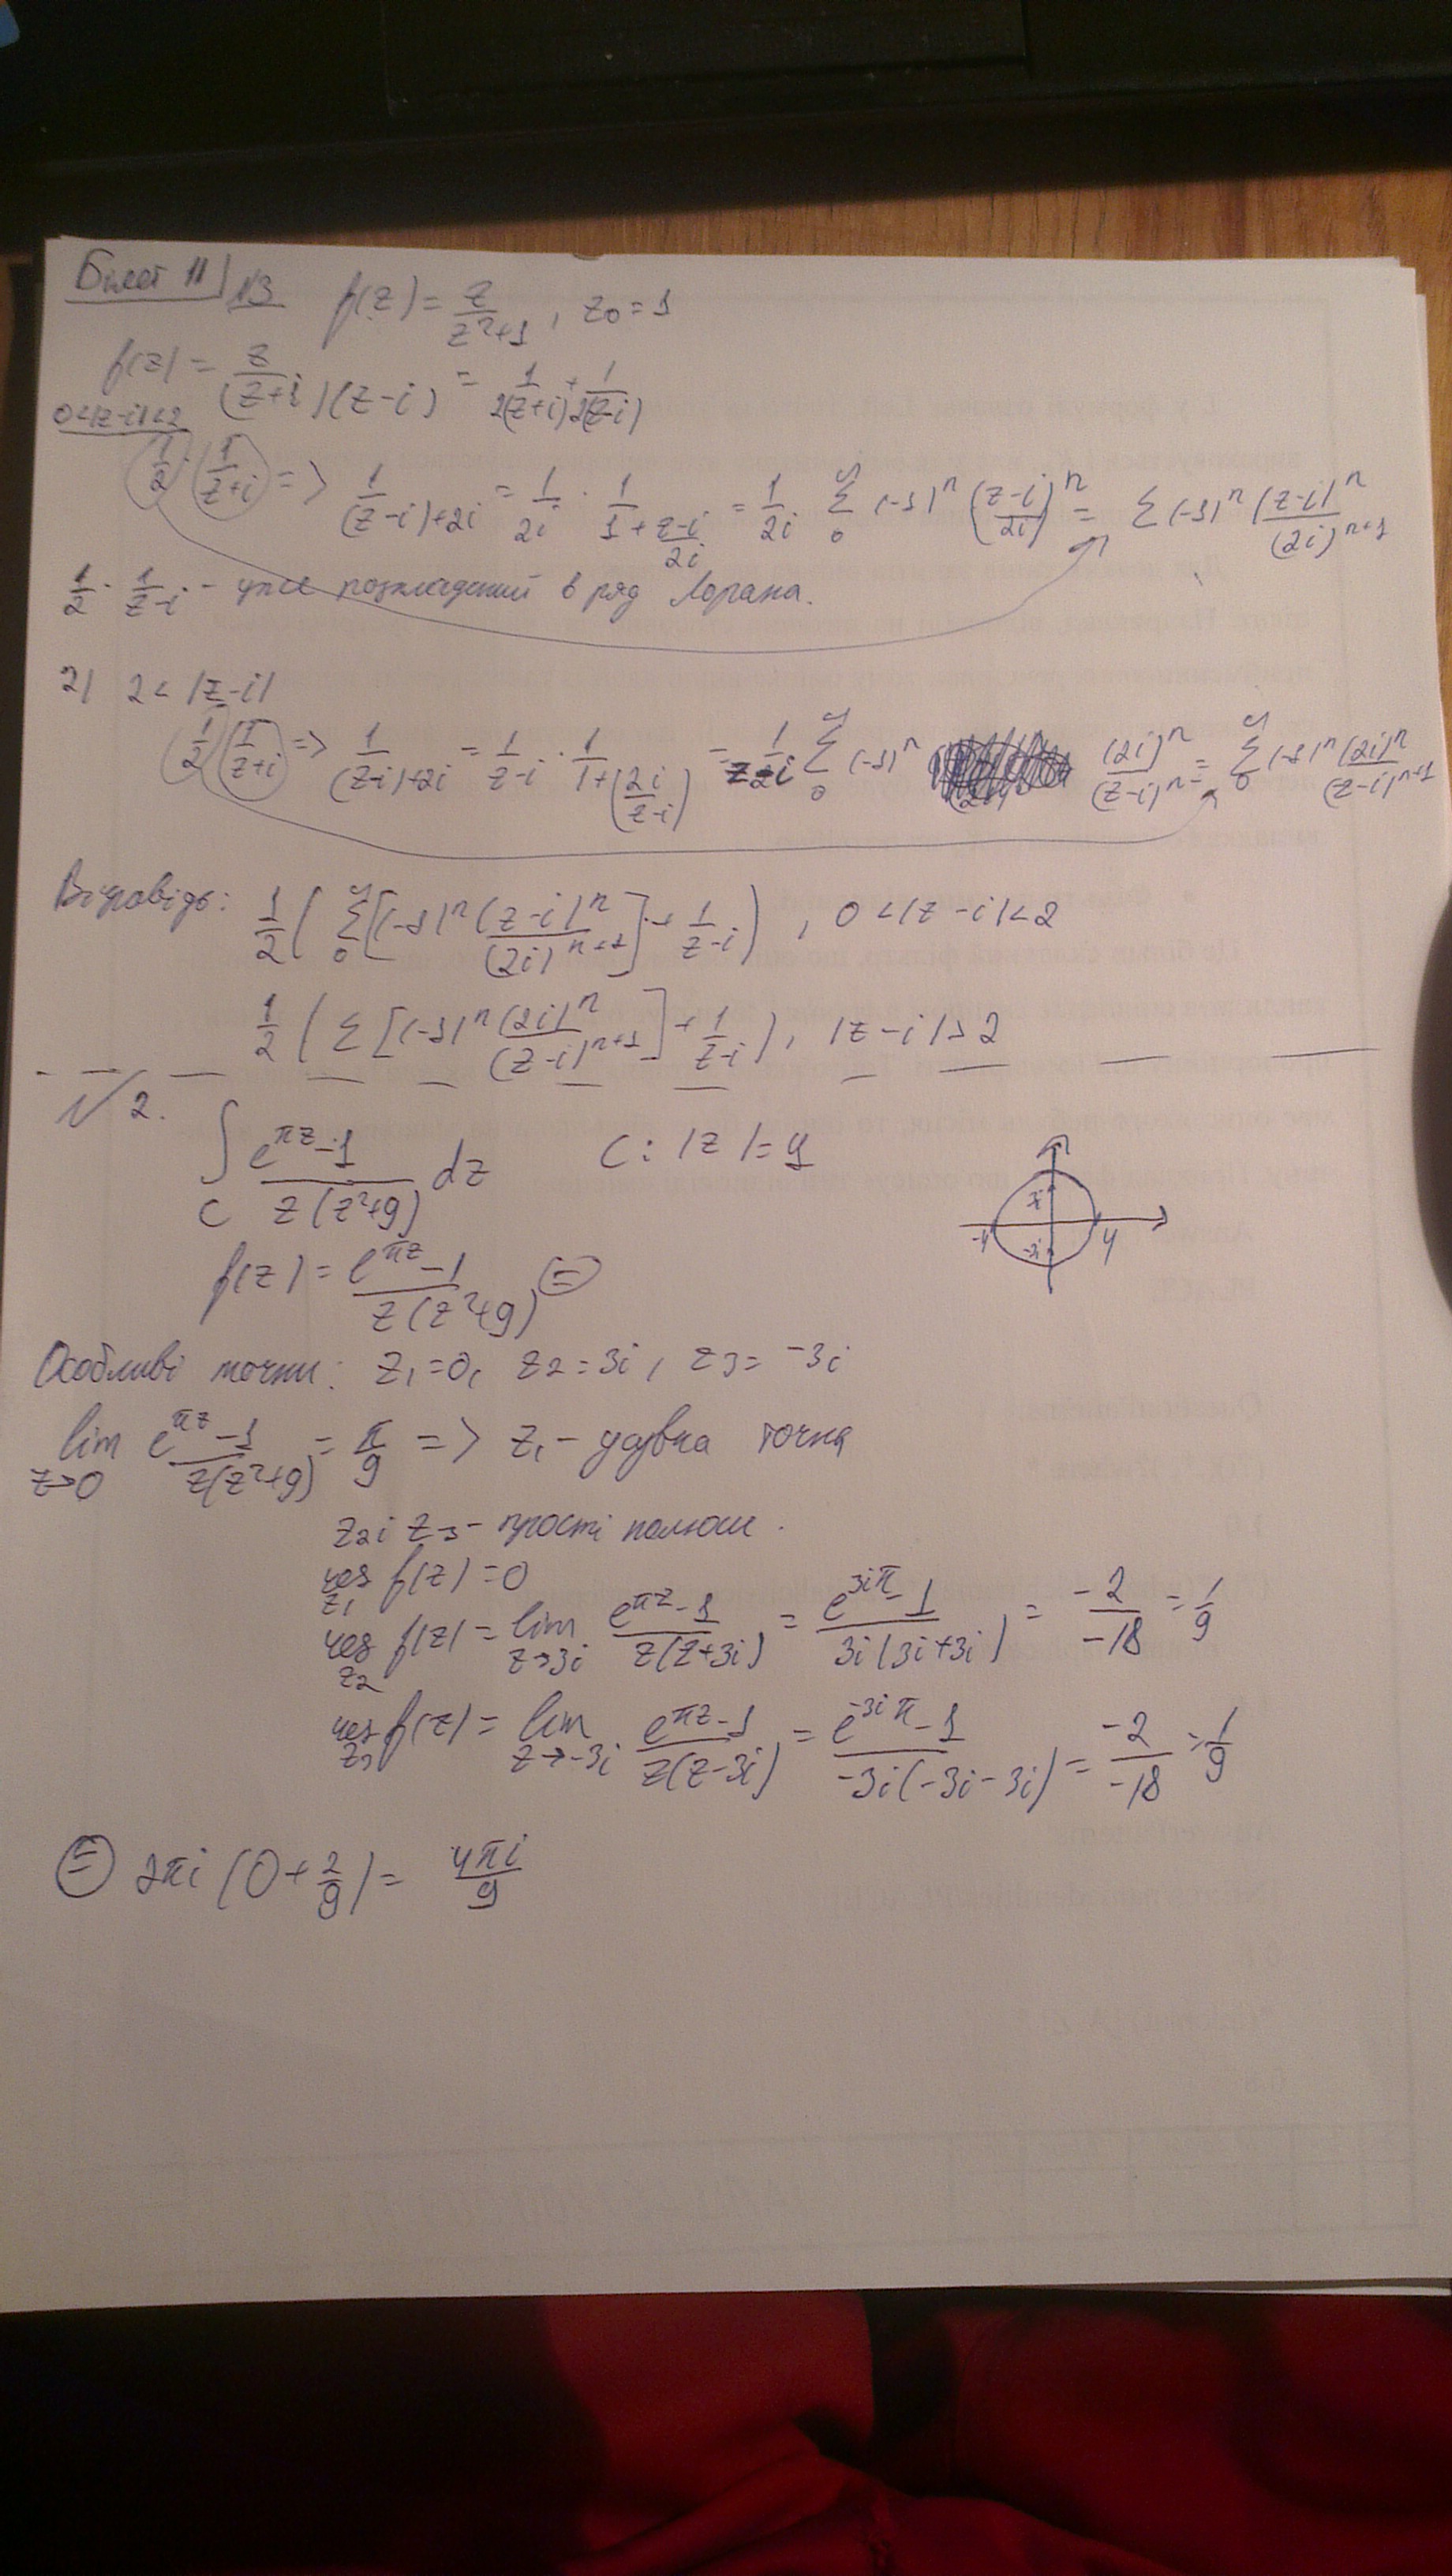 Білет 11 №3 f(z) = z/(z²+1), z₀ = 1
f(z) = z/((z+i)(z-i)) = 1/(2(z+i)) + 1/(2(z-i))
0<|z-i|<2
1/2 · (1/(z+i)) => 1/((z-i)+2i) = 1/2i · 1/(1 + (z-i)/2i) = 1/2i ∑₀^∞ (-1)ⁿ ((z-i)/2i)ⁿ = ∑ (-1)ⁿ (z-i)ⁿ/(2i)ⁿ⁺¹
1/2 · 1/(z-i) - уже розкладений в ряд Лорана.
2) 2 < |z-i|
1/2 (1/(z+i)) => 1/((z-i)+2i) = 1/(z-i) · 1/(1+(2i/(z-i))) = 1/(z-i) ∑₀^∞ (-1)ⁿ (2i)ⁿ/(z-i)ⁿ = ∑₀^∞ (-1)ⁿ(2i)ⁿ/(z-i)ⁿ⁺¹
Відповідь: 1/2 ( ∑₀^∞ [(-1)ⁿ (z-i)ⁿ/(2i)ⁿ⁺¹] + 1/(z-i) ), 0<|z-i|<2
1/2 ( ∑ [(-1)ⁿ (2i)ⁿ/(z-i)ⁿ⁺¹] + 1/(z-i) ), |z-i|>2
№2. ∫_C (e^{πz}-1)/(z(z²+9)) dz C: |z|=4
-4 4
f(z) = (e^{πz}-1)/(z(z²+9)) ⊜
Особливі точки: z₁=0, z₂=3i, z₃=-3i
lim_{z→0} (e^{πz}-1)/(z(z²+9)) = π/9 => z₁ - усувна точка
z₂ і z₃ - прості полюси.
res_{z₁} f(z) = 0
res_{z₂} f(z) = lim_{z→3i} (e^{πz}-1)/(z(z+3i)) = (e^{3iπ}-1)/(3i(3i+3i)) = -2/-18 = 1/9
res_{z₃} f(z) = lim_{z→-3i} (e^{πz}-1)/(z(z-3i)) = (e^{-3iπ}-1)/(-3i(-3i-3i)) = -2/-18 = 1/9
⊜ 2πi (0+2/9) = 4πi/9